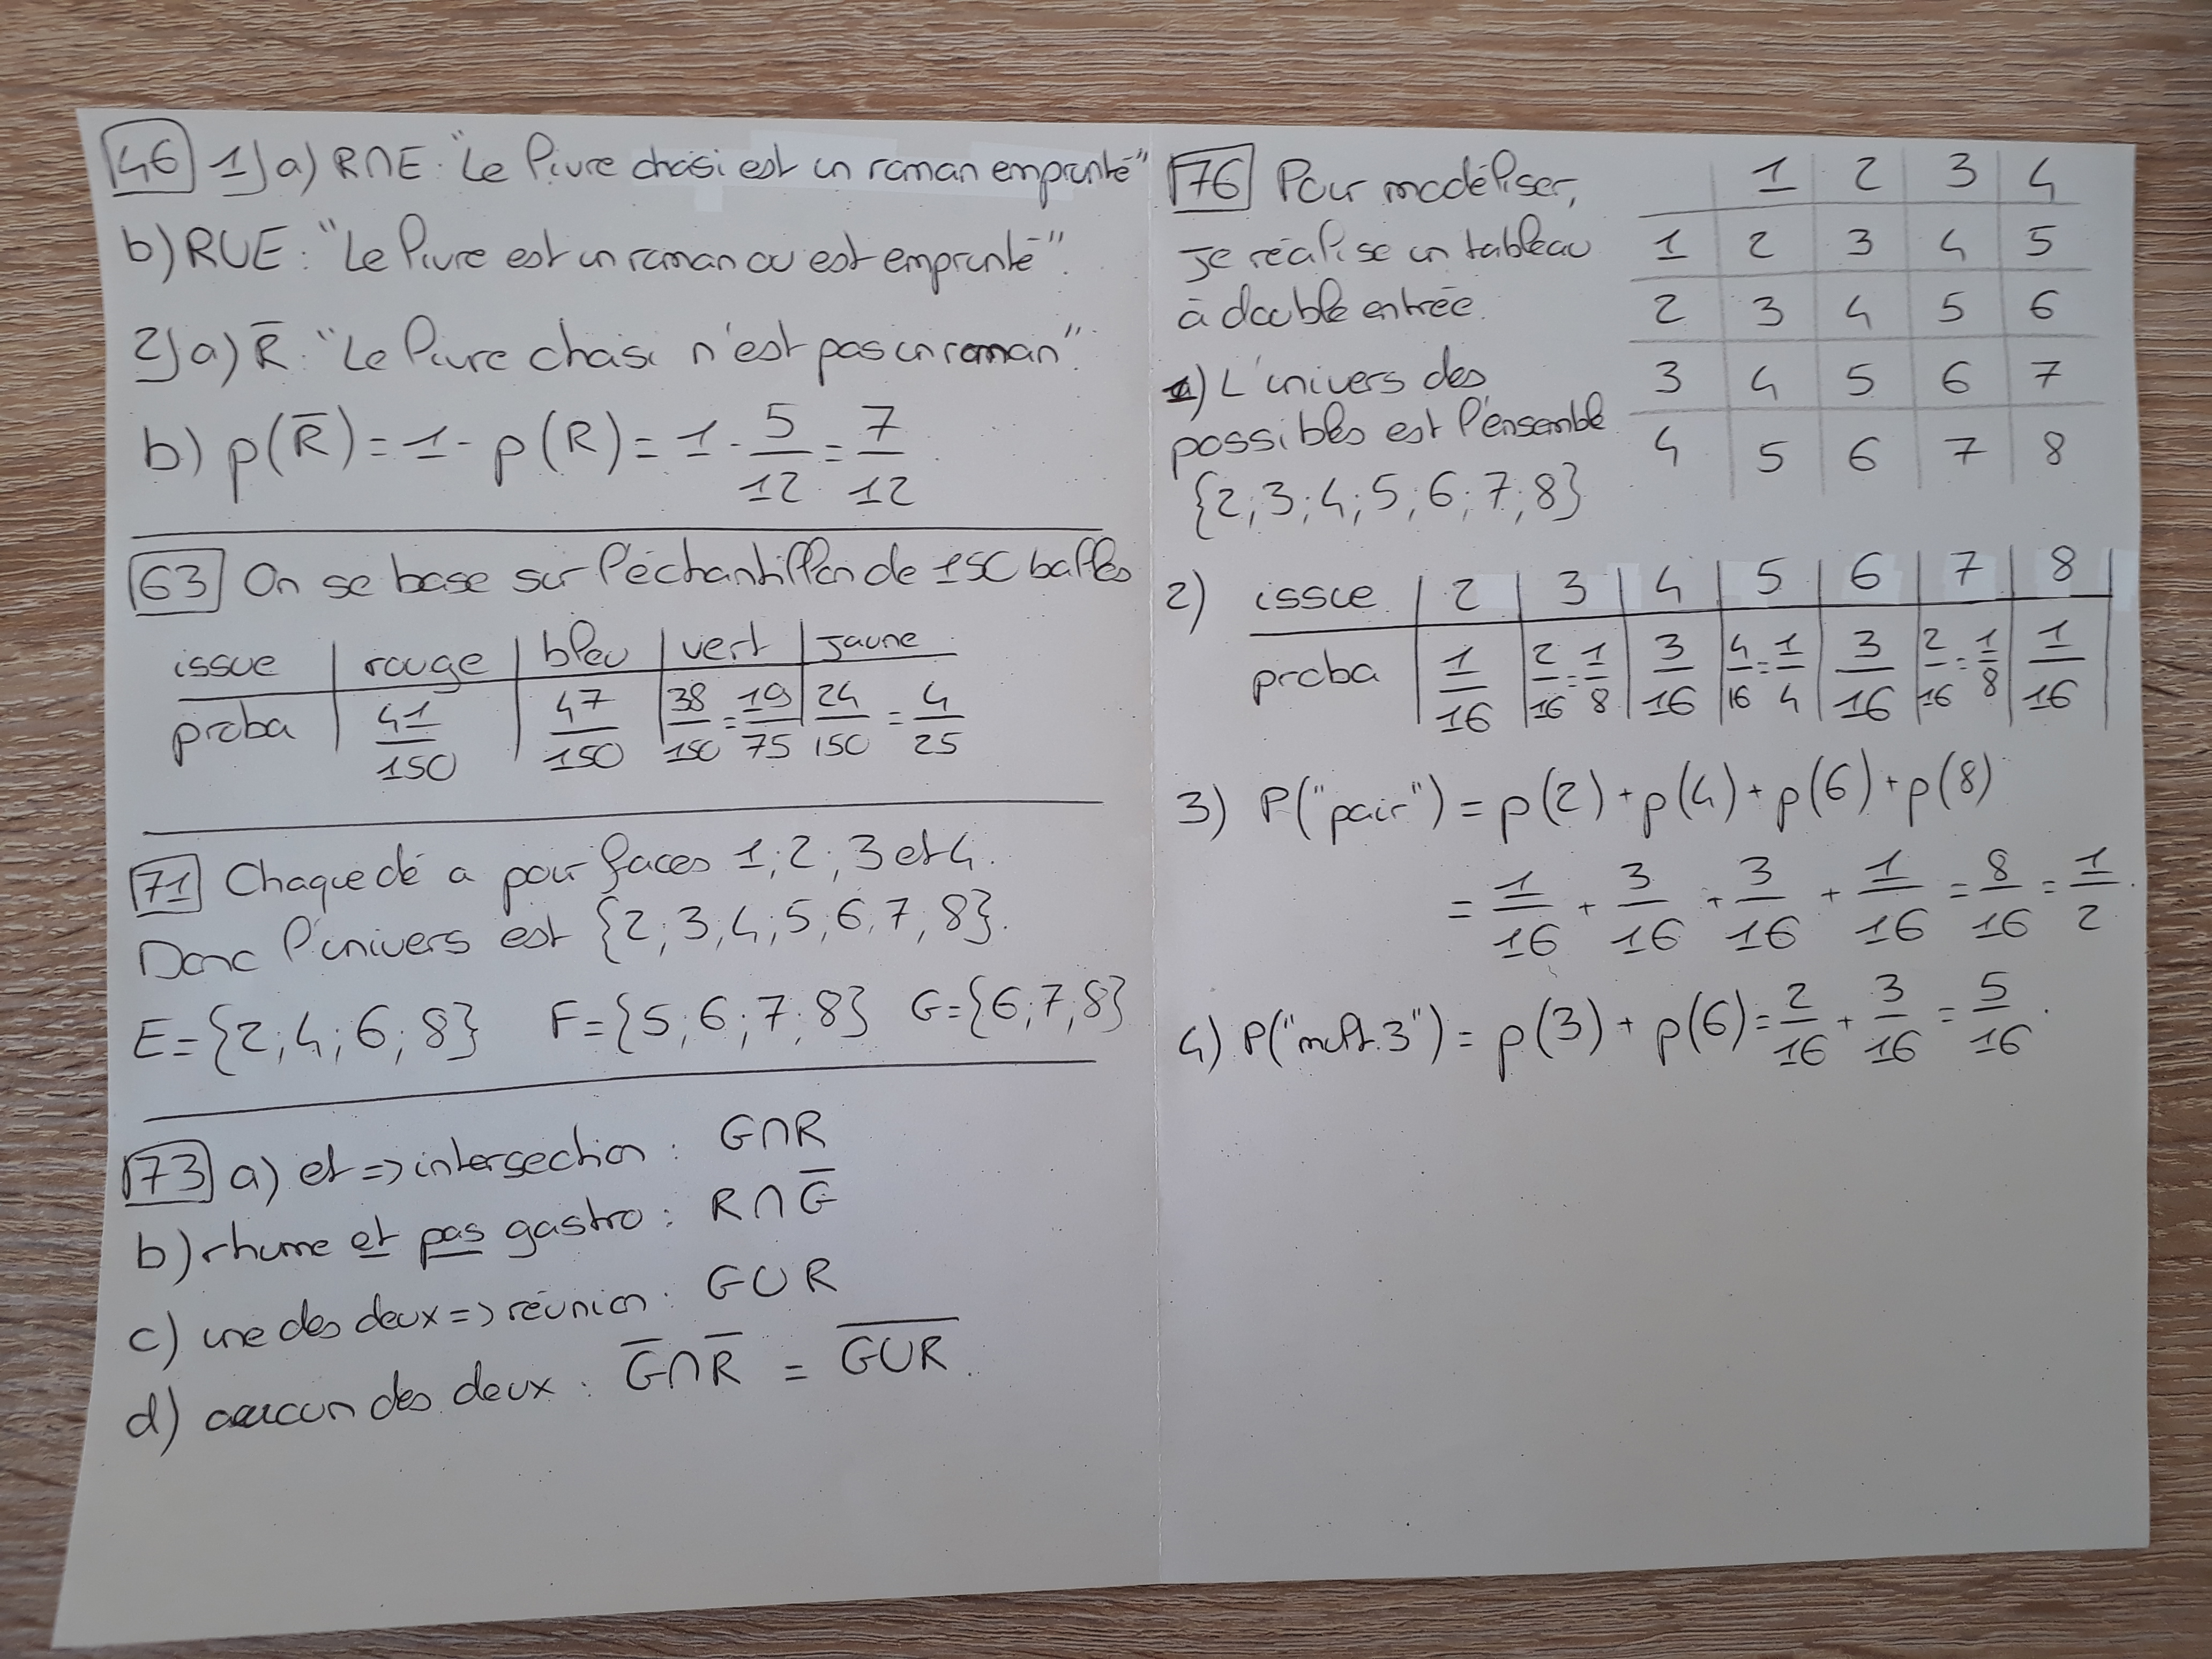 46 1) a) R∩E : "Le livre choisi est un roman emprunté"
b) R∪E : "Le livre est un roman ou est emprunté".
2) a) R̅ : "Le livre choisi n'est pas un roman".
b) p(R̅) = 1 - p(R) = 1 - 5/12 = 7/12.
63 On se base sur l'échantillon de 150 balles
issue | rouge | bleu | vert | jaune
proba | 41/150 | 47/150 | 38/150 = 19/75 | 24/150 = 4/25
71 Chaque dé a pour faces 1 ; 2 ; 3 et 4.
Donc l'univers est {2 ; 3 ; 4 ; 5 ; 6 ; 7 ; 8}.
E = {2 ; 4 ; 6 ; 8} F = {5 ; 6 ; 7 ; 8} G = {6 ; 7 ; 8}
73 a) et => intersection : G∩R
b) rhume et pas gastro : R∩G̅
c) une des deux => réunion : G∪R
d) aucun des deux : G̅∩R̅ = \overline{G∪R}.
76 Pour modéliser,
je réalise un tableau
à double entrée.
| 1 | 2 | 3 | 4
1 | 2 | 3 | 4 | 5
2 | 3 | 4 | 5 | 6
3 | 4 | 5 | 6 | 7
4 | 5 | 6 | 7 | 8
1) L'univers des
possibles est l'ensemble
{2 ; 3 ; 4 ; 5 ; 6 ; 7 ; 8}
2) issue | 2 | 3 | 4 | 5 | 6 | 7 | 8 |
proba | 1/16 | 2/16 = 1/8 | 3/16 | 4/16 = 1/4 | 3/16 | 2/16 = 1/8 | 1/16 |
3) P("pair") = p(2) + p(4) + p(6) + p(8)
= 1/16 + 3/16 + 3/16 + 1/16 = 8/16 = 1/2.
4) P("mult. 3") = p(3) + p(6) = 2/16 + 3/16 = 5/16.